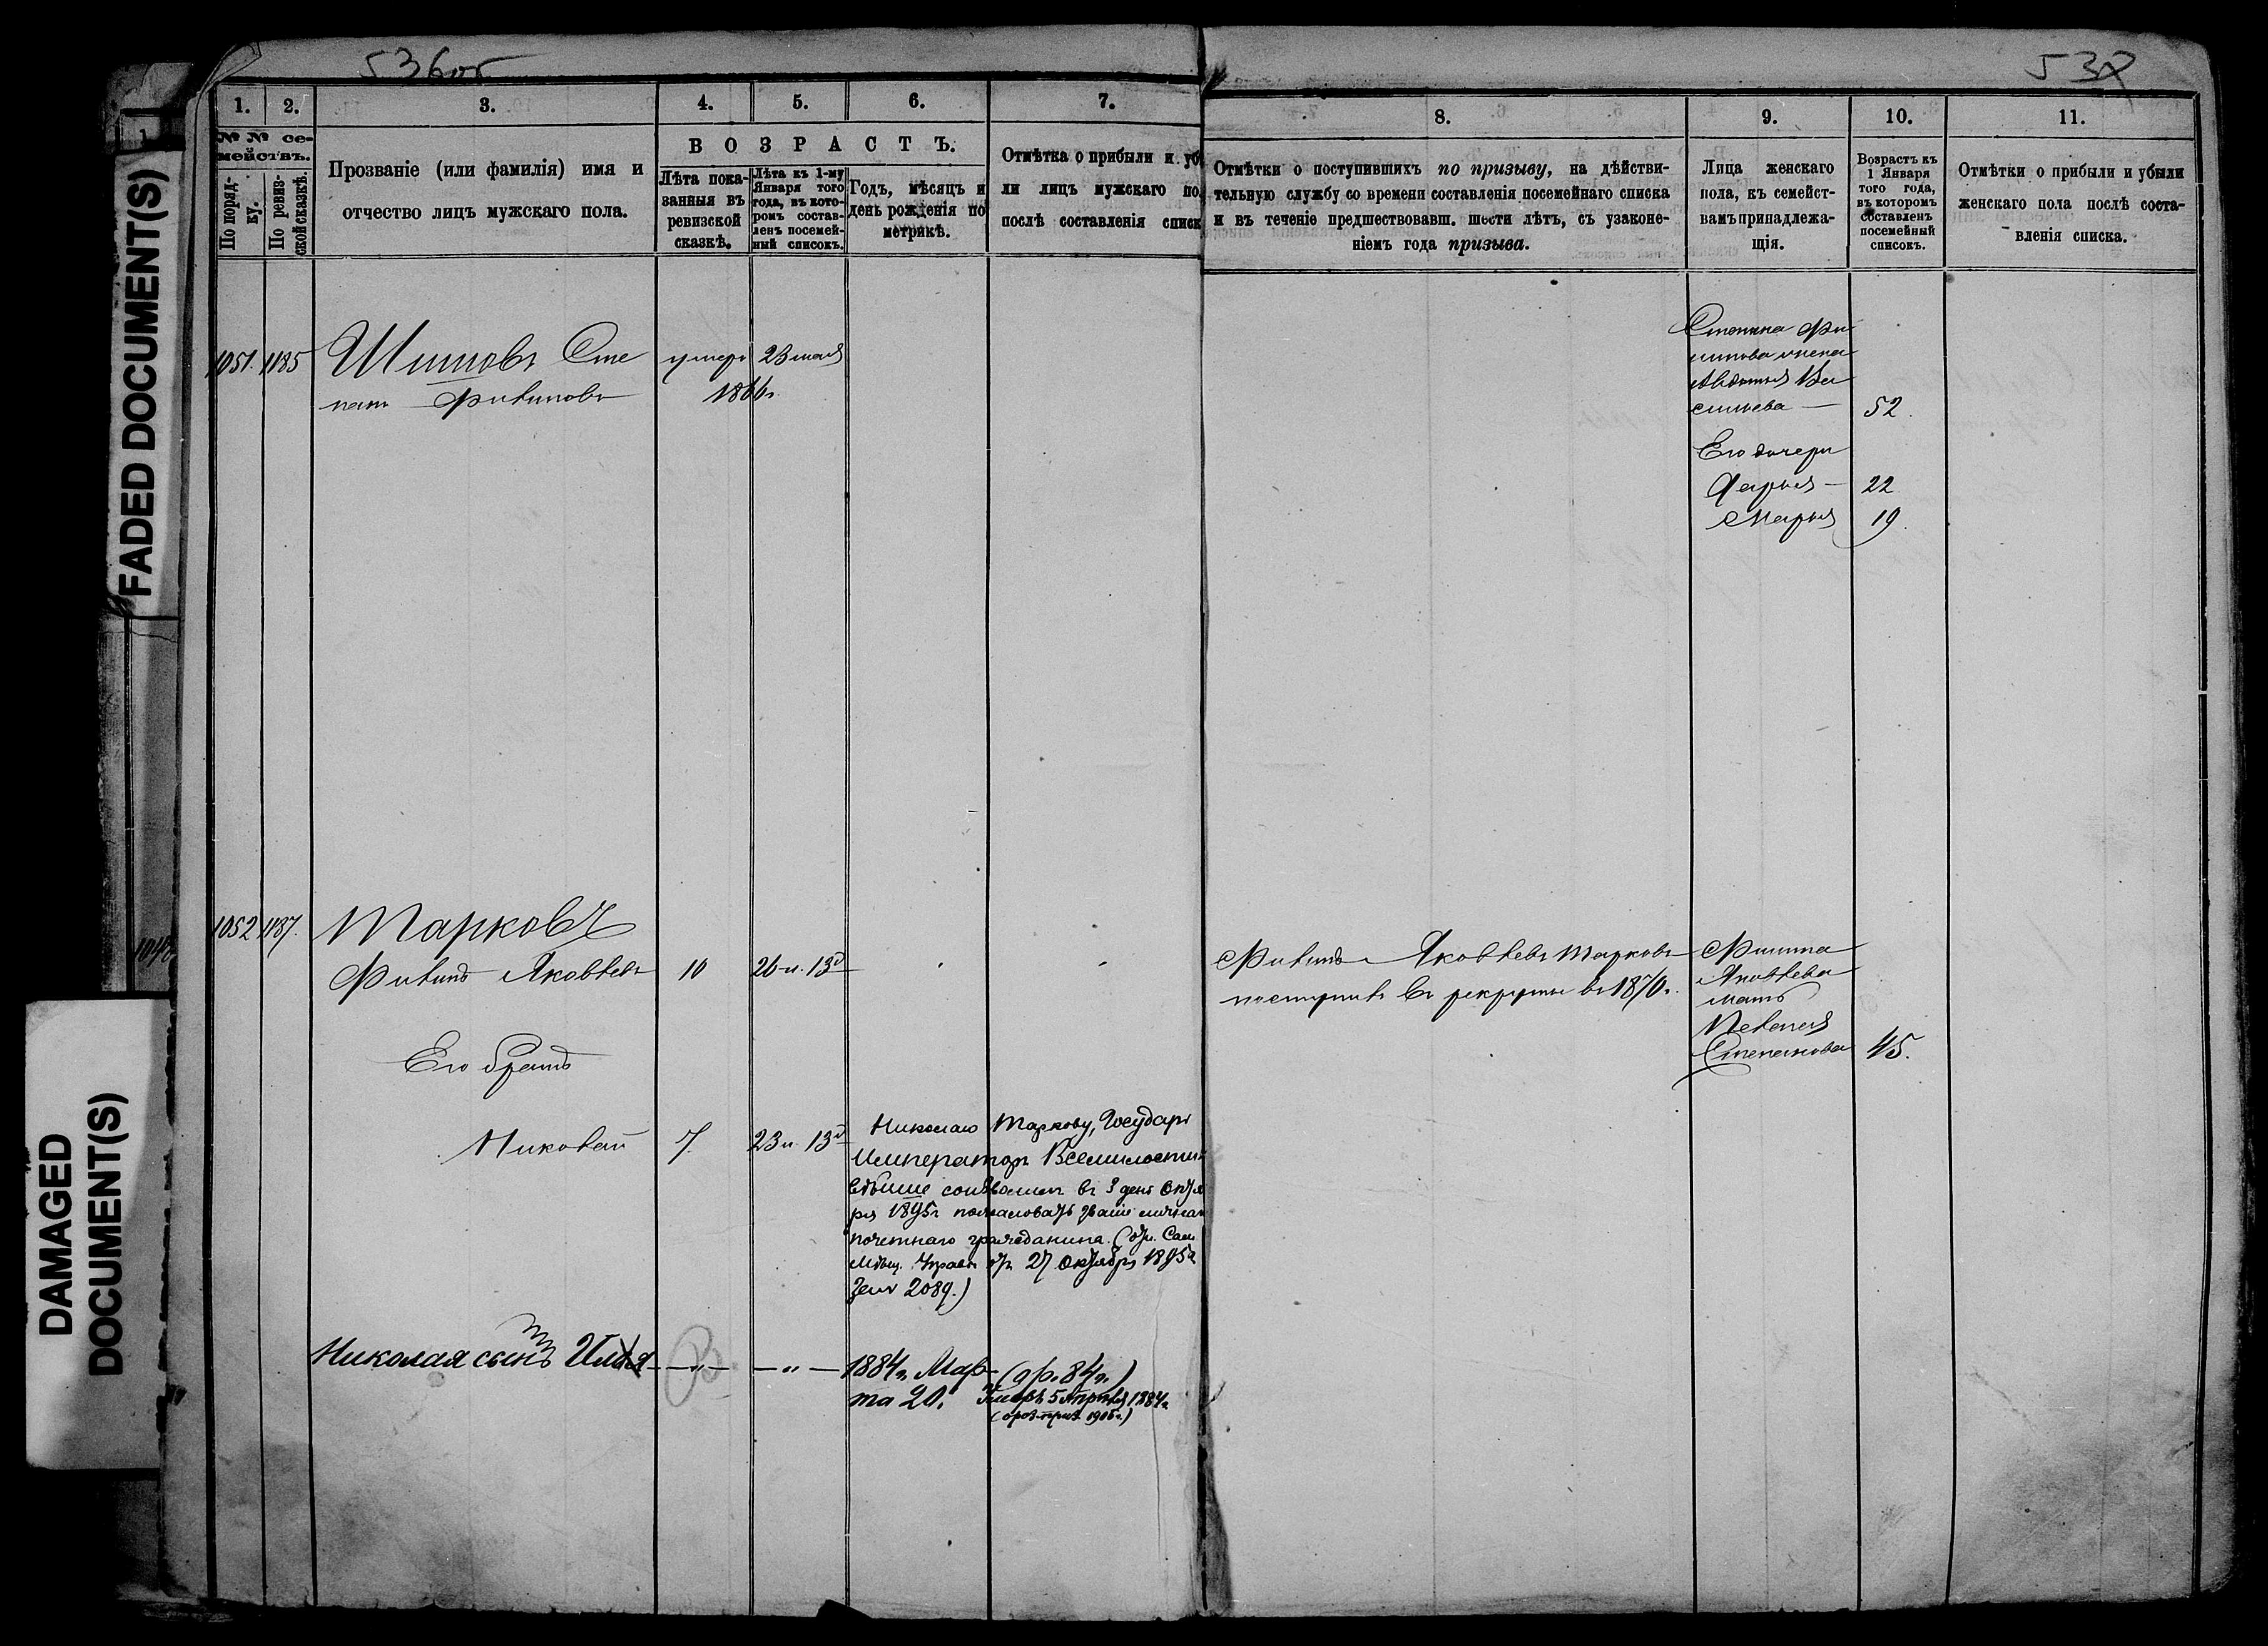 FADED DOCUMENT(S)
DAMAGED
DOCUMENT(S)
536об
537
1. 2. 3. 4. 5. 6. 7.
№ № се-
мействъ.
По поряд-
ку.
По ревиз-
ской сказкѣ.
Прозваніе (или фамилія) имя и
отчество лицъ мужскаго пола.
ВОЗРАСТЪ.
Лѣта пока-
занныя въ
ревизской
сказкѣ.
Лѣта къ 1-му
Января того
года, въ кото-
ромъ состав-
ленъ посемей-
ный списокъ.
Годъ, мѣсяцъ и
день рожденія по
метрикѣ.
Отмѣтка о прибыли и уб
ли лицъ мужскаго по
послѣ составленія списк
8. 9. 10. 11.
Отмѣтки о поступившихъ по призыву, на дѣйстви-
тельную службу со времени составленія посемейнаго списка
и въ теченіе предшествовавш. шести лѣтъ, съ узаконе-
ніемъ года призыва.
Лица женскаго
пола, къ семейст-
вамъ принадлежа-
щія.
Возрастъ къ
1 Января
того года,
въ которомъ
составленъ
посемейный
списокъ.
Отмѣтки о прибыли и убыли
женскаго пола послѣ соста-
вленія списка.
1051. 1185 Сте
панъ Филиповъ
умеръ 23 мая
1866г.
Степана Фи
липова жена
Авдотья Ва
сильева — 52.
Его дочери
Дарья — 22
Марья 19.
1052 1187. Тарковъ
Филипъ Яковлевъ 10 26 и. 13д
Филипъ Яковлевъ Тарковъ
поступилъ въ рекруты въ 1870г.
Филипа
Яковлева
мать
Пелагея
Степанова 45.
Его братъ
Николай 7. 23 и. 13д
Николаю Таркову, Государь
Императоръ Всемилостив
вѣйше соизволилъ въ 3 день Октя
ря 1895г пожаловать званіе личнаг
почетнаго гражданина. (от. Сам
Мѣщ. Управы отъ 27 октября 1895г
за № 2089.)
Николая сынъ Илья — „ — — „ — 1884г. Мар-
та 20.
(др. 84г.)
Умеръ 5 Апрѣля 1884г.
1048